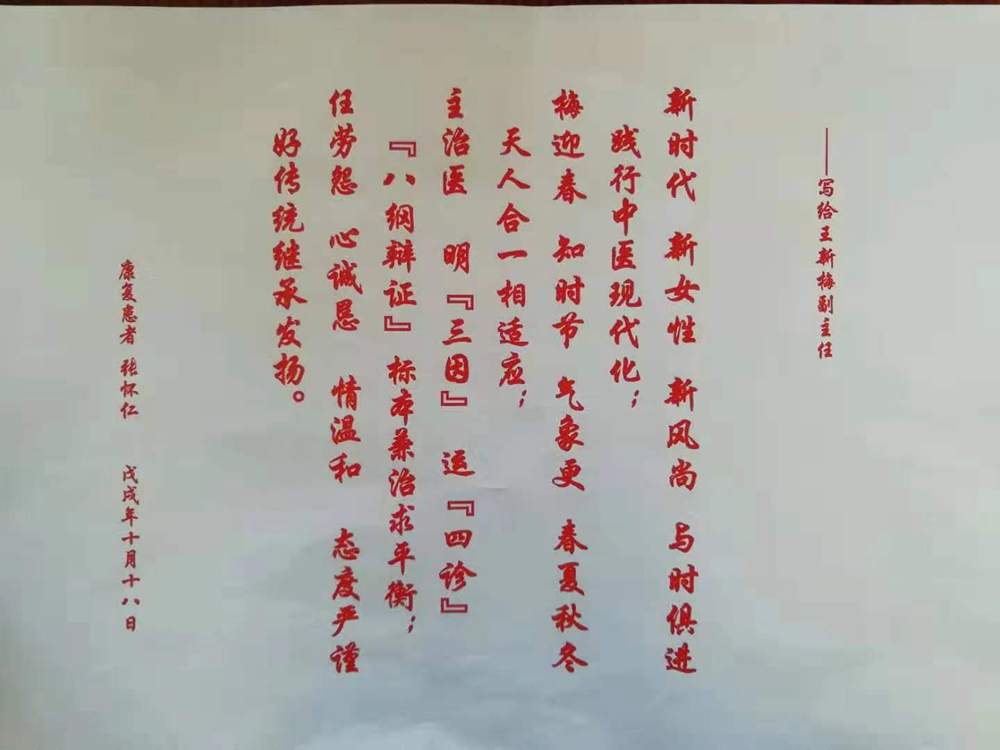 ——写给王新梅副主任
新时代 新女性 新风尚 与时俱进
践行中医现代化；
梅迎春 知时节 气象更 春夏秋冬
天人合一相适应；
主治医 明『三因』 运『四诊』
『八纲辩证』 标本兼治求平衡；
任劳怨 心诚恳 情温和 态度严谨
好传统继承发扬。
康复患者 张怀仁 戊戌年十月十八日